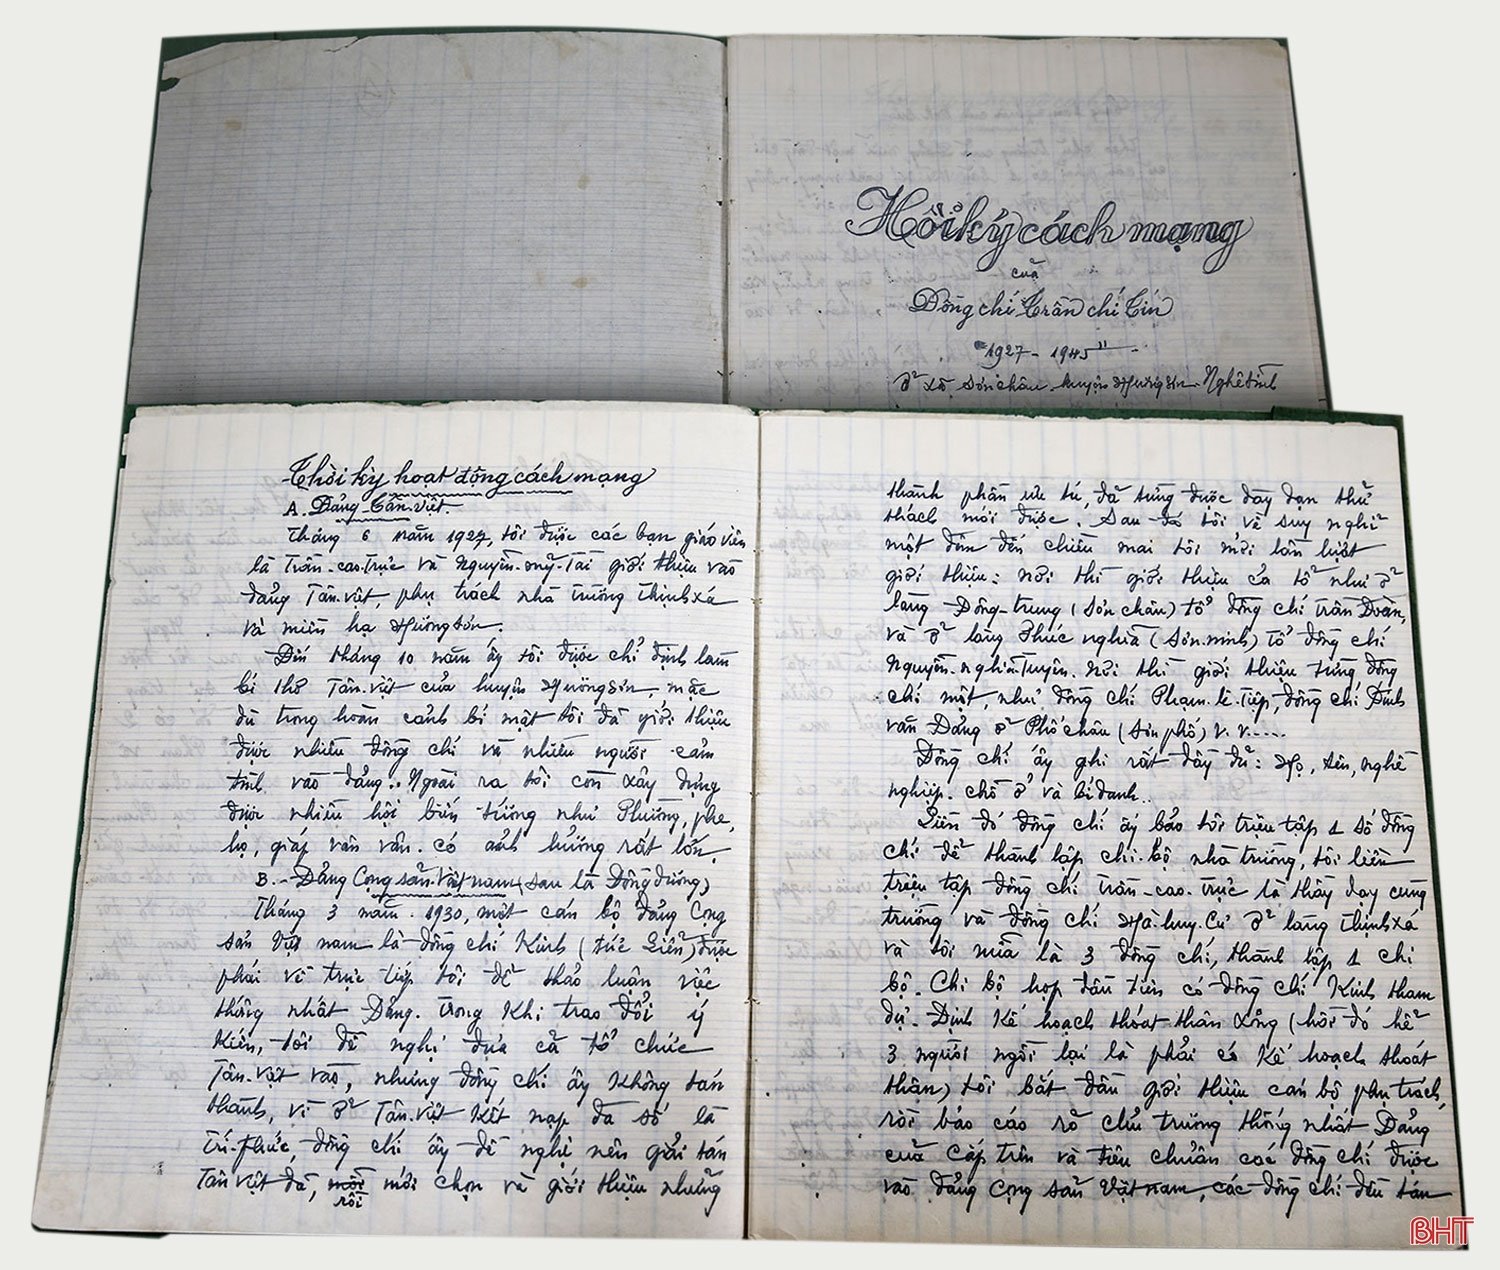 Hồi ký cách mạng
của
Đồng chí Trần chí Tín
"1927 - 1945"
ở xã Sơn châu huyện Hương Sơn - Nghệ tĩnh
Thời kỳ hoạt động cách mạng
A. Đảng Tân Việt
Tháng 6 năm 1927, tôi được các bạn giáo viên
là Trần-cao-Trực và Nguyễn-mỹ-Tài giới thiệu vào
đảng Tân-việt, phụ trách nhà trường Thịnh xá
và miền hạ Hương Sơn.
Đến tháng 10 năm ấy tôi được chỉ định làm
bí thơ Tân-việt của huyện Hương Sơn, mặc
dù trong hoàn cảnh bí mật tôi đã giới thiệu
được nhiều đồng chí và nhiều người cảm
tình vào đảng.. Ngoài ra tôi còn xây dựng
được nhiều hội biến tướng như Phường, phe,
họ, giáp vân vân. có ảnh hưởng rất lớn.
B. - Đảng Cộng sản Việt nam (sau là Đông dương)
Tháng 3 năm 1930, một cán bộ đảng Cộng
sản Việt nam là đồng chí Kính (tức Liễn) được
phái về trực tiếp tôi để thảo luận việc
thống nhất Đảng. Trong khi trao đổi ý
kiến, tôi đề nghị đưa cả tổ chức
Tân-việt vào, nhưng đồng chí ấy không tán
thành, vì ở Tân-việt kết nạp đa số là
Trí-thức, đồng chí ấy đề nghị nên giải tán
Tân việt đã, rồi mới chọn và giới thiệu những
thành phần ưu tú, đã từng được dày dạn thử
thách mới được. Sau đó tôi về suy nghĩ
một đêm đến chiều mai tôi mới lần lượt
giới thiệu: nơi thì giới thiệu cả tổ như ở
làng Đông-trung (Sơn châu) tổ đồng chí Trần Đoàn,
và ở làng Phúc nghĩa (Sơn-ninh) tổ đồng chí
Nguyễn-nghĩa-Tuyên. nơi thì giới thiệu từng đồng
chí một, như đồng chí Phạm-lê-Tiếp, đồng chí Đinh
văn Đảng ở Phố châu (Sơn phố) v.v.....
Đồng chí ấy ghi rất đầy đủ: Họ, tên, nghề
nghiệp. chỗ ở và bí danh..
Liền đó đồng chí ấy bảo tôi triệu tập 1 số đồng
chí để thành lập chi-bộ nhà trường, tôi liền
triệu tập đồng chí Trần-cao-Trực là thầy dạy cùng
trường và đồng chí Hà-huy-Cư ở làng Thịnh xá
và tôi nữa là 3 đồng chí, thành lập 1 chi
bộ. Chi bộ họp đầu tiên có đồng chí Kính tham
dự. Định kế hoạch thoát thân xong (hồi đó hễ
3 người ngồi lại là phải có kế hoạch thoát
thân) tôi bắt đầu giới thiệu cán bộ phụ trách,
rồi báo cáo rõ chủ trương thống nhất Đảng
của Cấp trên và tiêu chuẩn các đồng chí được
vào đảng Cộng sản Việt nam, các đồng chí đều tán
BHT